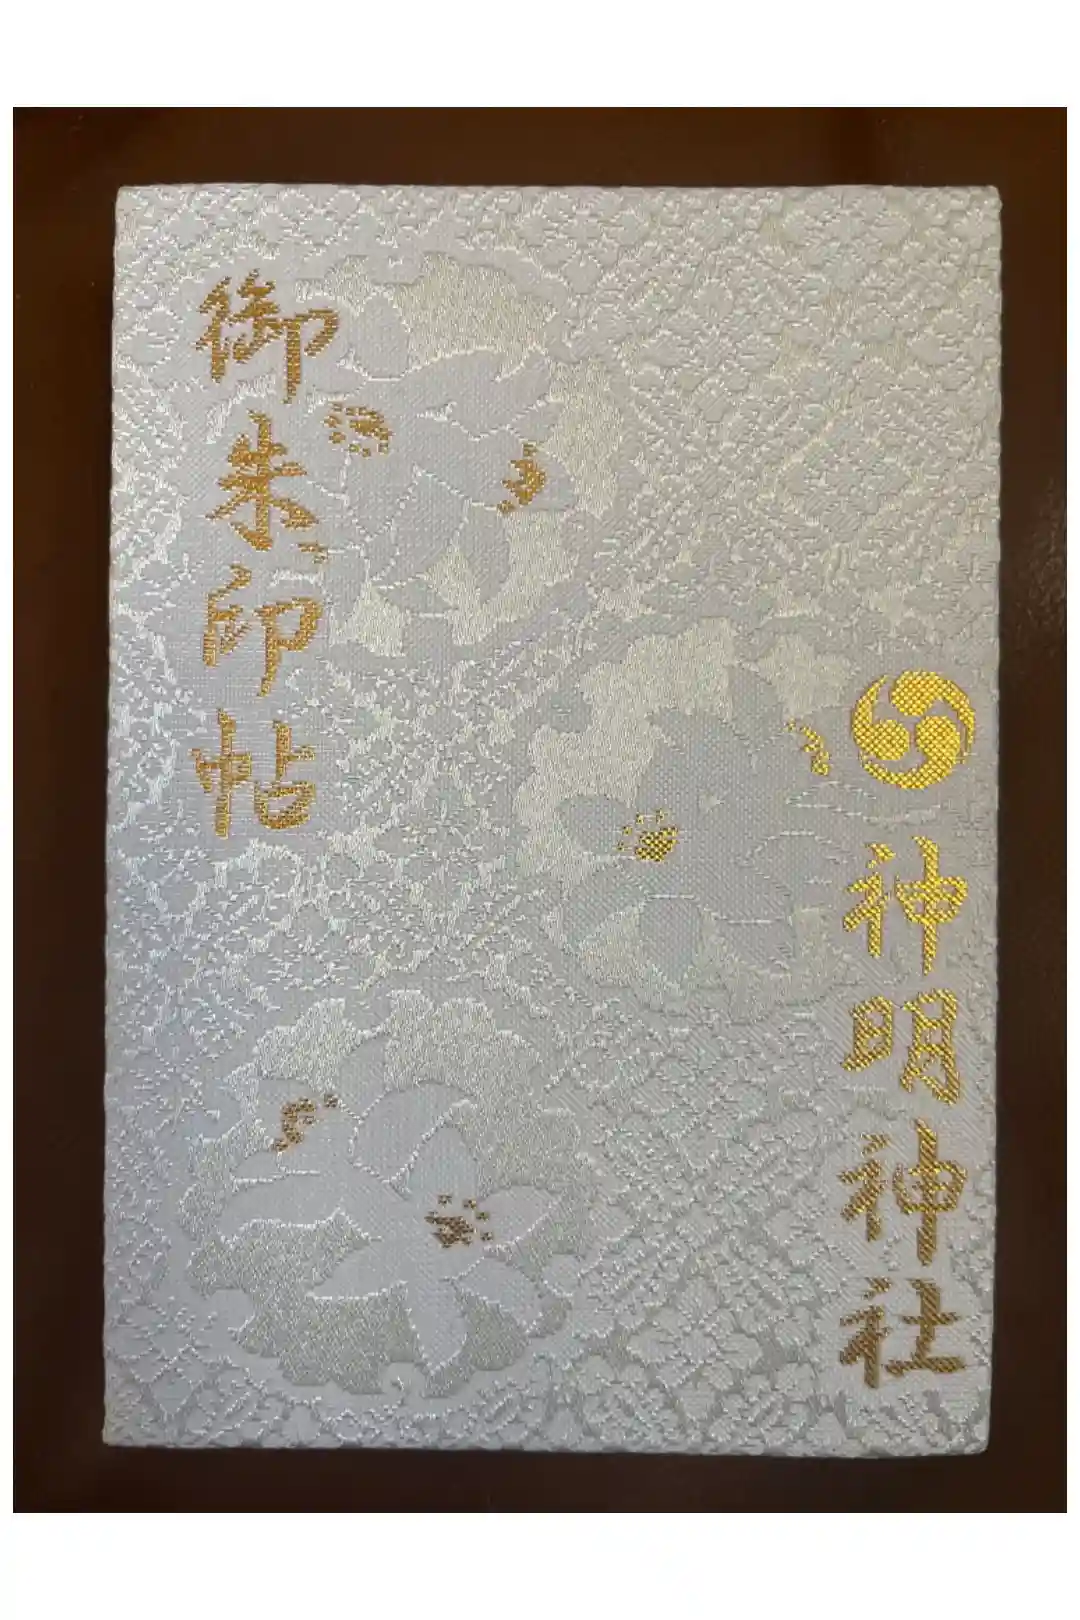 神明神社
御朱印帖